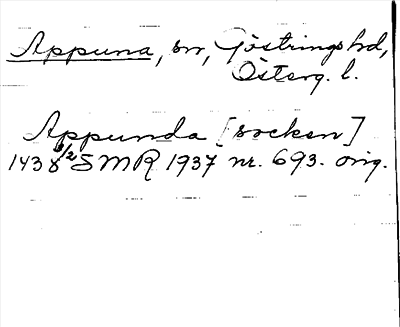 Appuna, sn, Göstrings hd,
Österg. l.
Appunda [socken]
1438 9/2 SMR 1937 nr. 693. orig.